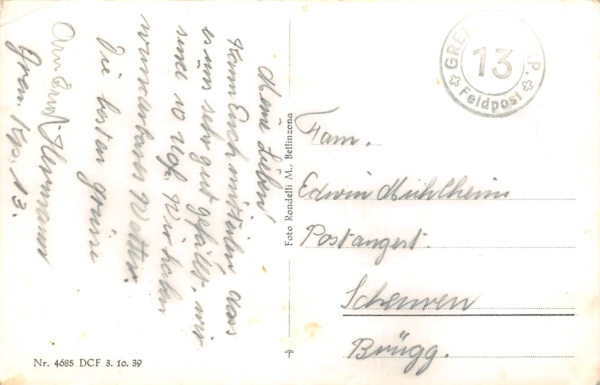 Meine Lieben!
Kann Euch mitteilen dass
es uns sehr gut gefällt, wir
sind 10 Uof. Wir haben
wunderbares Wetter.
Die besten Grüsse
Hermann
Gren. Kp. 13.
GREN. KP.
13
Feldpost
Fam.
Edwin Mühlheim
Postangest.
Scheuren
Brügg.
Foto Rondelli M., Bellinzona
Nr. 4685 DCF 3. 10. 39